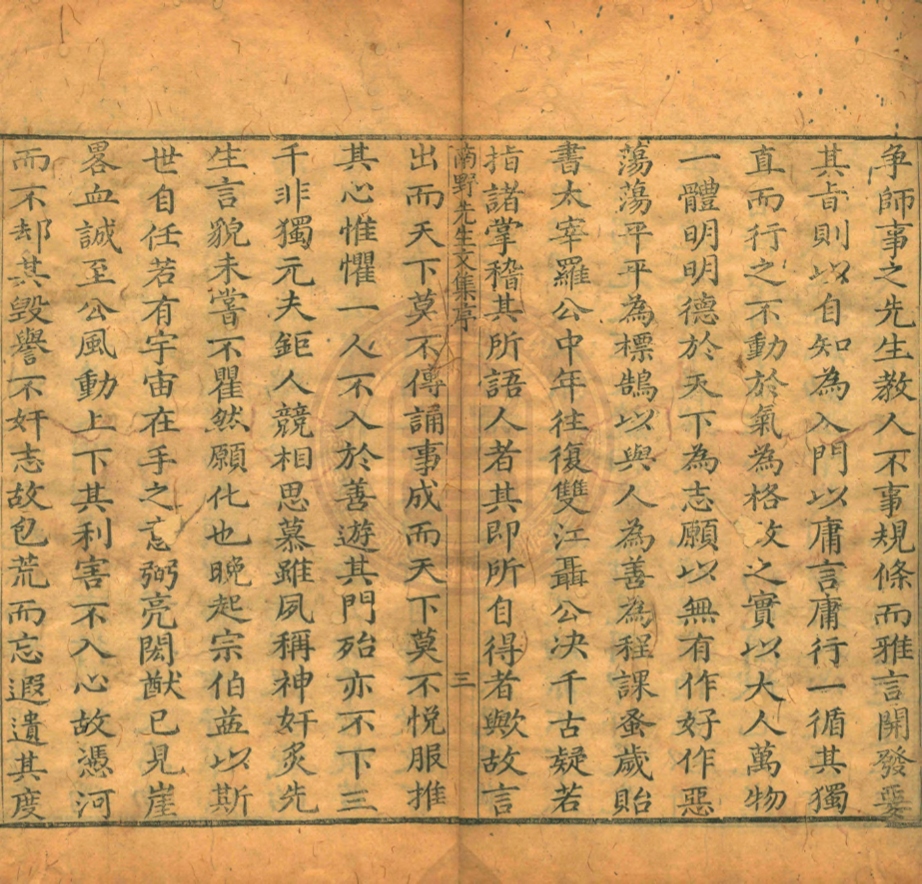 争師事之先生教人不事規條而雅言開發要
其旨則以自知為入門以庸言庸行一循其獨
直而行之不動於氣為格致之實以大人萬物
一體明明德於天下為志願以無有作好作惡
蕩蕩平平為標鵠以與人為善為程課蚤歲貽
書太宰羅公中年往復雙江聶公决千古疑若
指諸掌稽其所語人者其即所自得者歟故言
南野先生文集序 三
出而天下莫不傳誦事成而天下莫不悅服推
其心惟懼一人不入於善遊其門殆亦不下三
千非獨元夫鉅人競相思慕雖夙稱神奸炙先
生言貌未嘗不瞿然願化也晚起宗伯益以斯
世自任若有宇宙在手之志弼亮閎猷已見崖
畧血誠至公風動上下其利害不入心故憑河
而不却其毀譽不奸志故包荒而忘遐遺其度